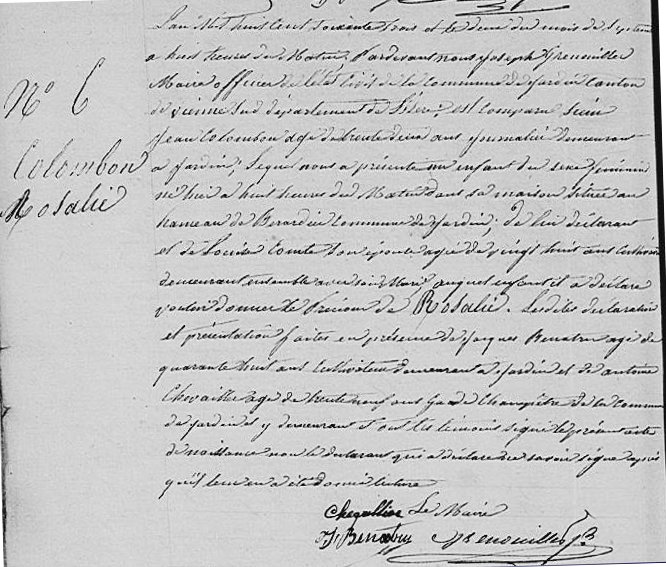 N° 6
Colombon
Rosalie
L'an mil huit cent soixante trois et le deux du mois de Septem
a huit heures du Matin. Pardevant nous Joseph Grenouiller
Maire officier de l'état Civil de la Commune de Jardin Canton
de vienne Sud département de l'isère, est Comparu
Jean Colombon agé de trente deux ans demeurant
a Jardin, lequel nous a présenté un enfant du sexe féminin
né hier a huit heures du Matin dans sa maison située au
hameau de Berardier Commune de Jardin, de lui déclarant
et de Louise Comte son épouse agée de vingt huit ans Cultivat
demeurant ensemble avec son Mari, auquel enfant il a déclaré
vouloir donner le Prénom de Rosalie. Lesdites declaration
et présentation faites en présence de Jacques Benatru agé de
quarante huit ans Cultivateur demeurant a Jardin et de antoine
Chevallier agé de trente neuf ans Garde Champêtre de la Commune
de Jardin et y demeurant et ont les témoins signé le présent acte
de naissance non le déclarant qui a déclaré ne savoir signer après
qu'il leur en a été donné lecture
Chevallier Le Maire
J. Benatru Grenouiller